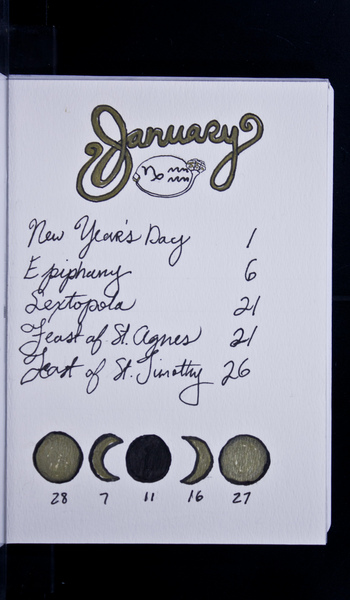 January
New Year's Day 1
Epiphany 6
Sextopola 21
Feast of St. Agnes 21
Feast of St. Timothy 26
28 7 11 16 27